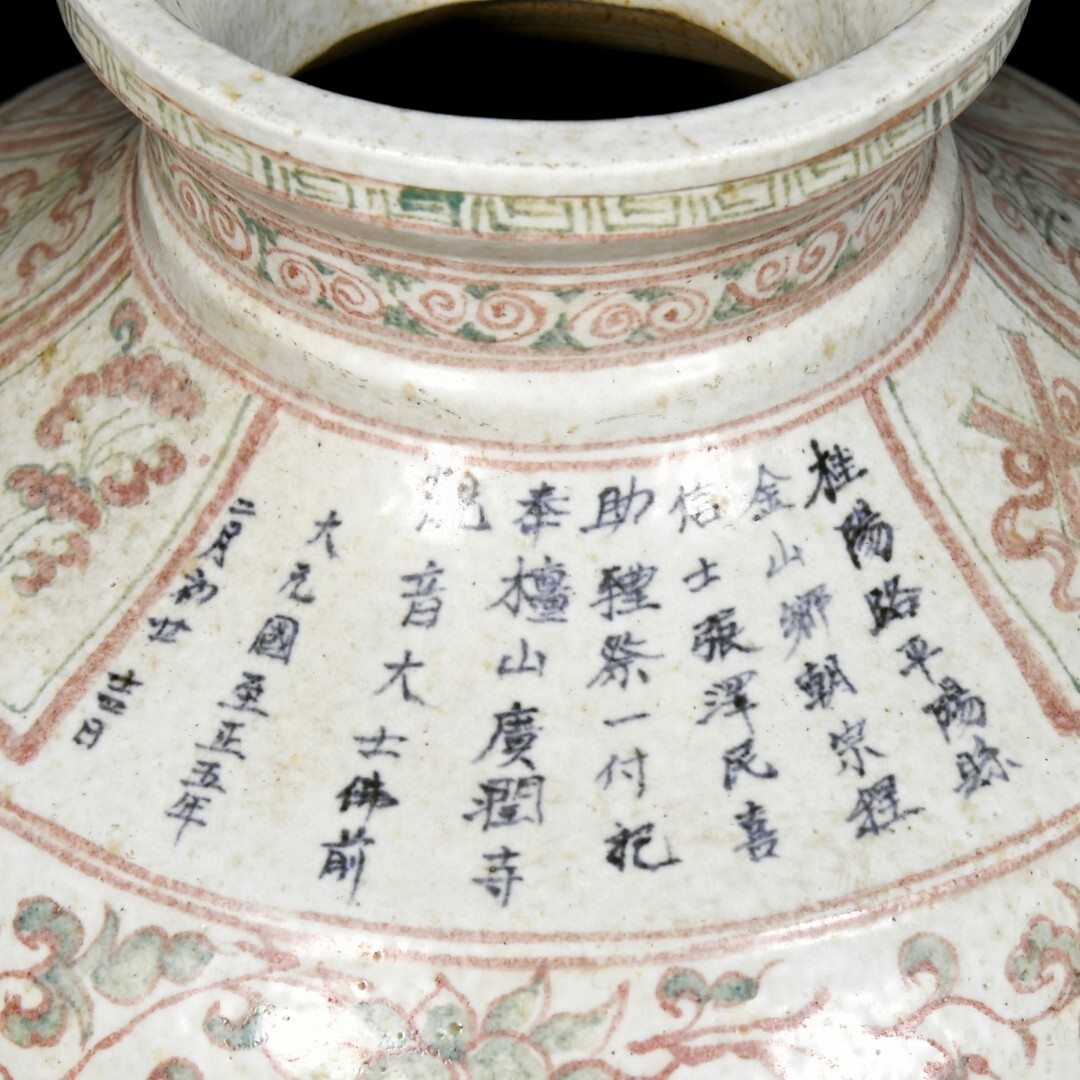 桂陽路平陽縣
金山鄉朝宗裡
信士張澤民喜
助禮祭一付祀
奉檀山廣潤寺
觀音大士佛前
大元國至正五年
二月初廿吉日